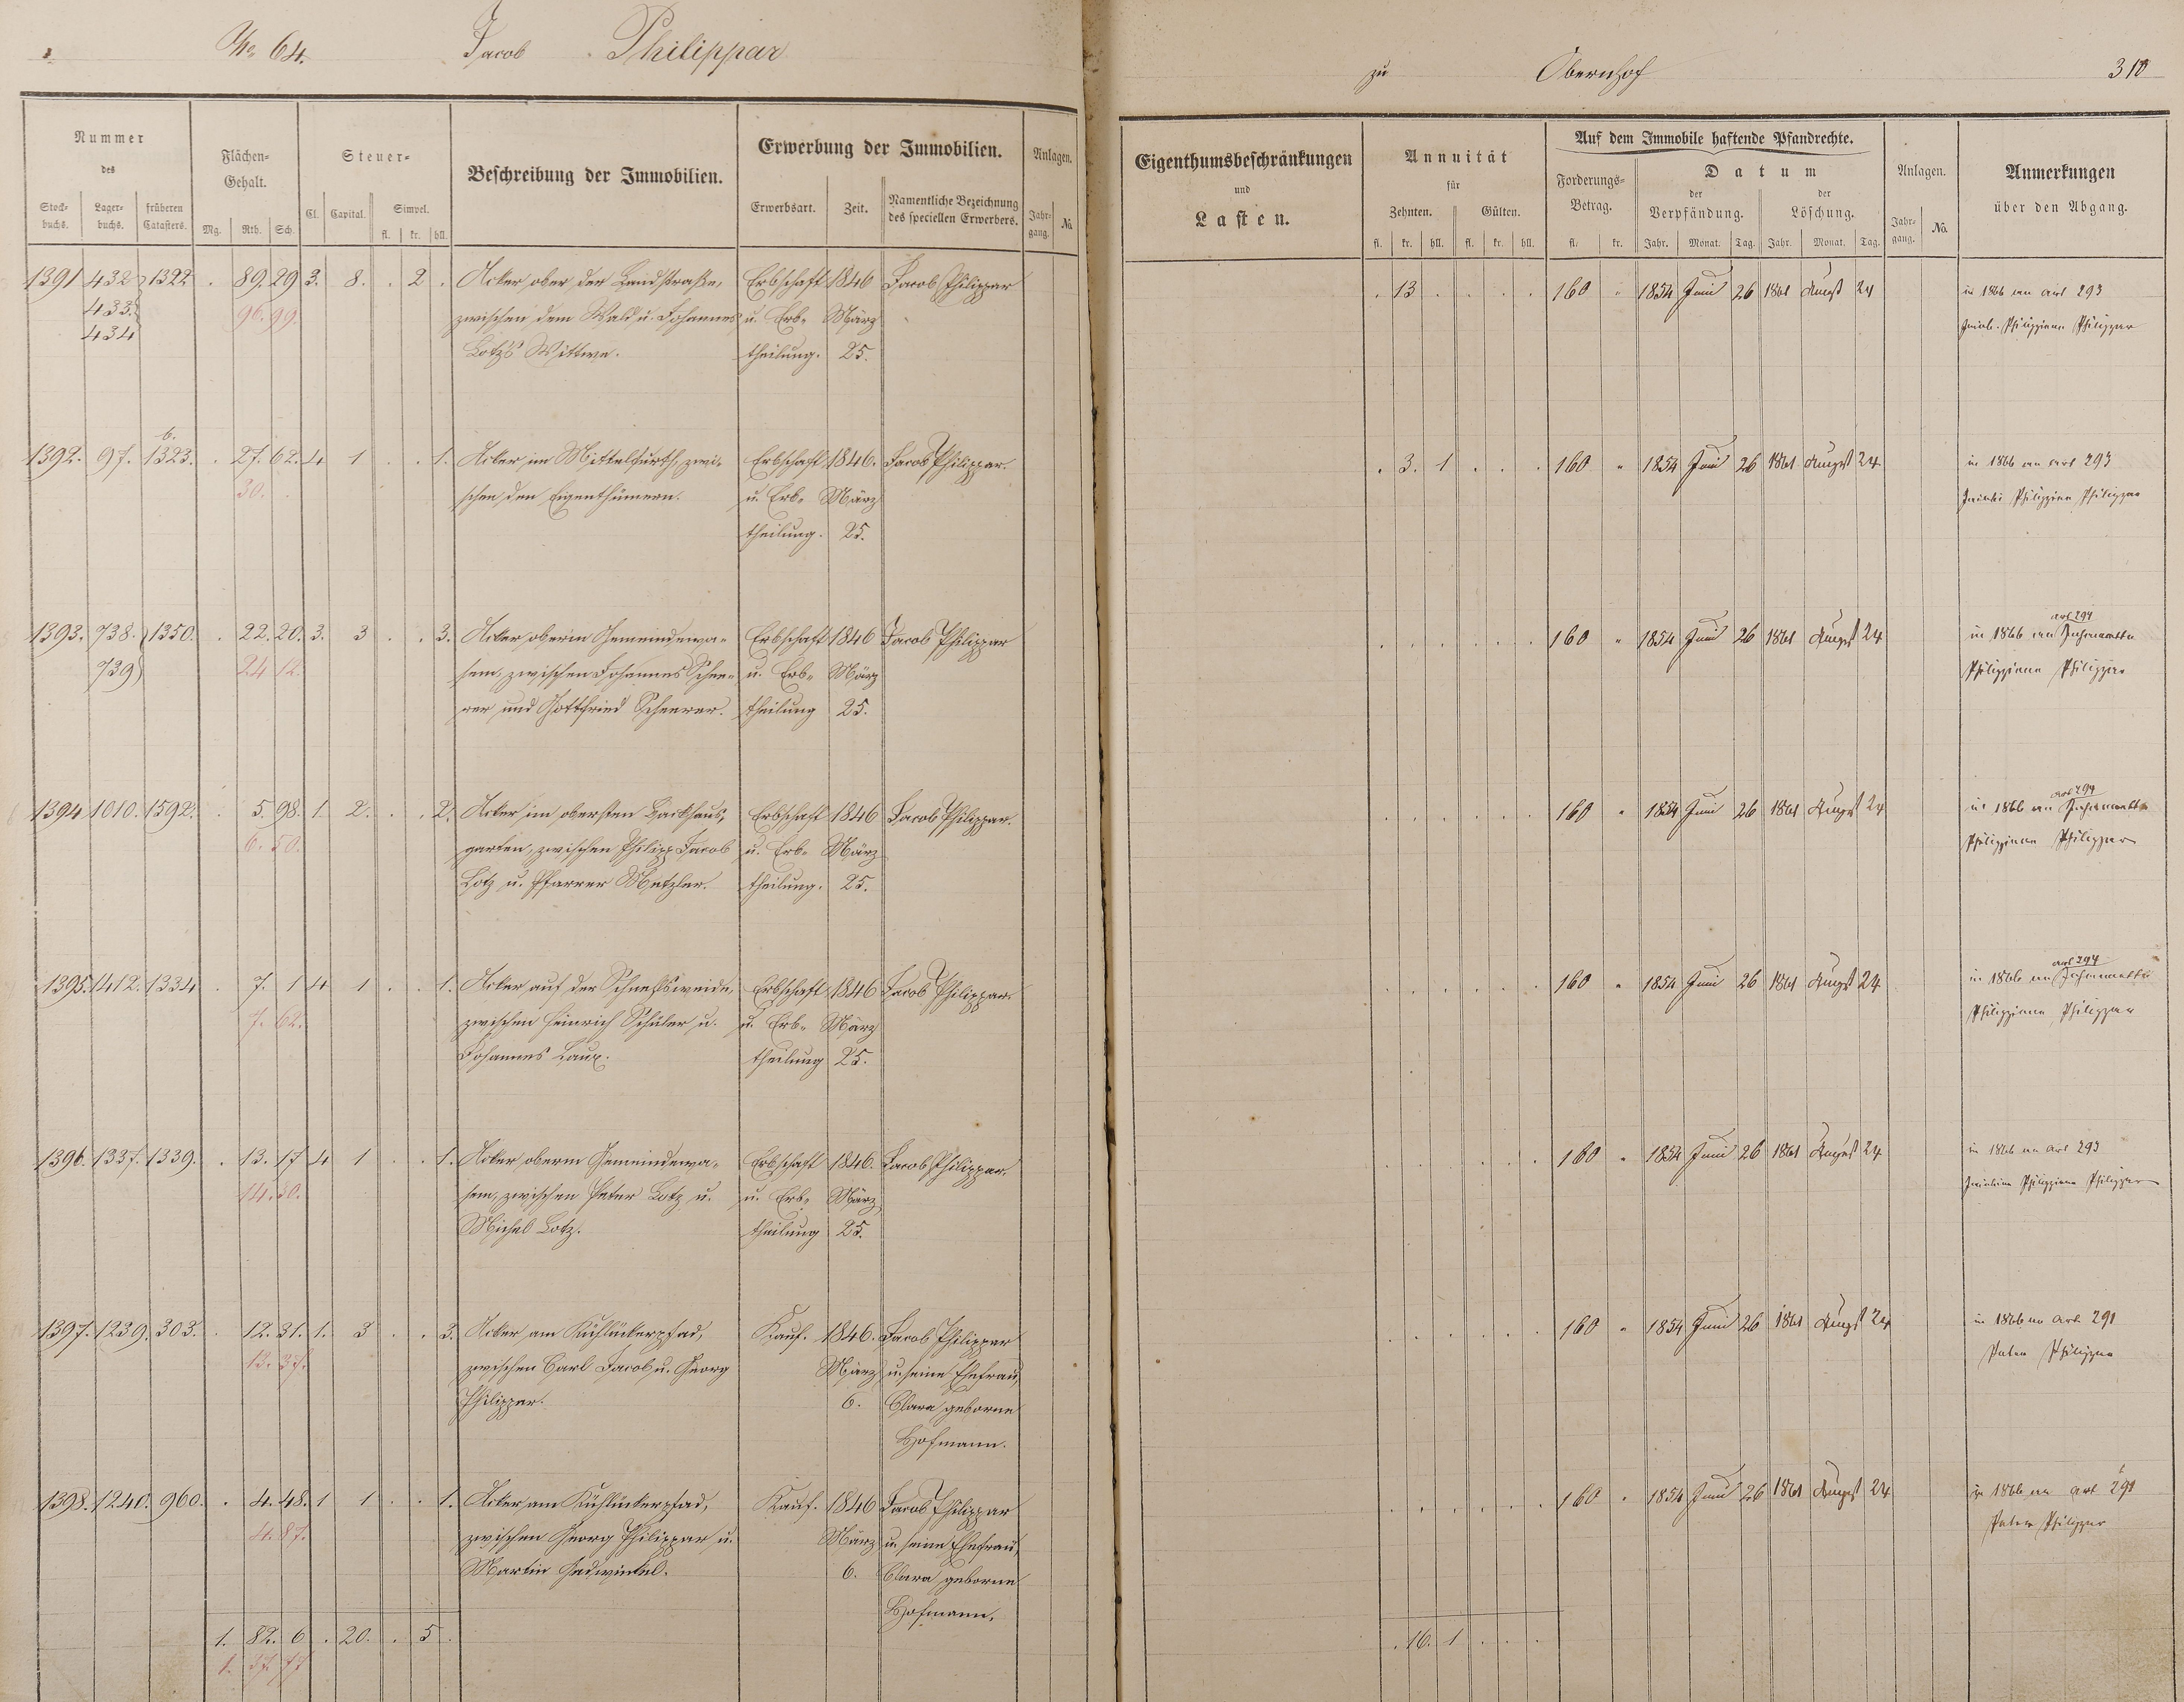 No 64. Jacob Philippar
zu Obernhof 310
Nummer des
Stockbuchs. Lagerbuchs. früheren Catasters.
Flächen-Gehalt.
Mg. Rth. Sch.
Steuer-
Cl. Capital. Simpel.
fl. kr. hll.
Beschreibung der Immobilien.
Erwerbung der Immobilien.
Erwerbsart. Zeit. Namentliche Bezeichnung des speciellen Erwerbers.
Anlagen.
Jahrgang. No.
Eigenthumsbeschränkungen und Lasten.
Annuität für
Zehnten. Gülten.
fl. kr. hll. fl. kr. hll.
Auf dem Immobile haftende Pfandrechte.
Forderungs-Betrag.
fl. kr.
Datum
der Verpfändung. der Löschung.
Jahr. Monat. Tag. Jahr. Monat. Tag.
Anlagen.
Jahrgang. No.
Anmerkungen über den Abgang.
1391 432 1322 . 89. 29 3. 8. . 2 . Acker ober der Landstraße, Erbschaft 1846 Jacob Philippar . 13 . . . . 160 " 1854 Juni 26 1861 August 24 in 1866 an art 293
433. 96. 99. zwischen dem Wald u. Johannes u. Erb- März Philippine Philippar
434 Lotz's Wittwe. theilung. 25.
6.
1392. 97. 1323. . 27. 62. 4 1 . . 1. Acker im Mittelfurth, zwi- Erbschaft 1846. Jacob Philippar. . 3. 1 . . . 160 " 1854 Juni 26 1861 August 24 in 1866 an art 293
30. schen den Eigenthümern. u. Erb- März Philippine Philippar
theilung. 25.
art 294
1393. 738. 1350. . 22. 20. 3. 3 . . 3. Acker oberm Gemeindewa- Erbschaft 1846 Jacob Philippar . . . . . . 160 " 1854 Juni 26 1861 August 24 in 1866 an Johannette
739 24 12. sem, zwischen Johannes Schee- u. Erb- März Philippine Philippar
rer und Gottfried Scheerer. theilung 25.
art 294
1394 1010. 1592. . 5. 98. 1. 2. . . 2. Acker im obersten Backhaus- Erbschaft 1846 Jacob Philippar. . . . . . . 160 " 1854 Juni 26 1861 August 24 in 1866 an Johannette
6. 50. garten, zwischen Philipp Jacob u. Erb- März Philippine Philippar
Lotz u. Pfarrer Metzler. theilung. 25.
art 294
1395. 1412. 1334 . 7. 1 4 1 . . 1. Acker auf der Erbschaft 1846 Jacob Philippar. . . . . . . 160 " 1854 Juni 26 1861 August 24 in 1866 an Johannette
7. 62. zwischen Heinrich Schüler u. u. Erb- März Philippine Philippar
Johannes Laux. theilung 25.
1396. 1337. 1339. . 13. 17 4 1 . . 1. Acker oberm Gemeindewa- Erbschaft 1846. Jacob Philippar. . . . . . . 160 " 1854 Juni 26 1861 August 24 in 1866 an art 293
14. 30. sem, zwischen Peter Lotz u. u. Erb- März Philippine Philippar
Michel Lotz. theilung 25.
1397. 1239. 303. . 12. 31. 1. 3 . . 3. Acker am Kühlückerpfad, Kauf. 1846. Jacob Philippar . . . . . . 160 " 1854 Juni 26 1861 August 24 in 1866 an art 291
13. 37. zwischen Carl Jacob u. Georg März u. seine Ehefrau, Peter Philippar
Philippar. 6. Clara geborne
Hofmann.
1398. 1240. 960. . 4. 48. 1 1 . . 1. Acker am Kühlückerpfad, Kauf. 1846 Jacob Philippar . . . . . . 160 " 1854 Juni 26 1861 August 24 in 1866 an art 291
4. 87. zwischen Georg Philippar u. März u. seine Ehefrau, Peter Philippar
Martin 6. Clara geborne
Hofmann.
1. 82. 6 . 20. . 5 . . 16. 1 . . .
1. 97. 77